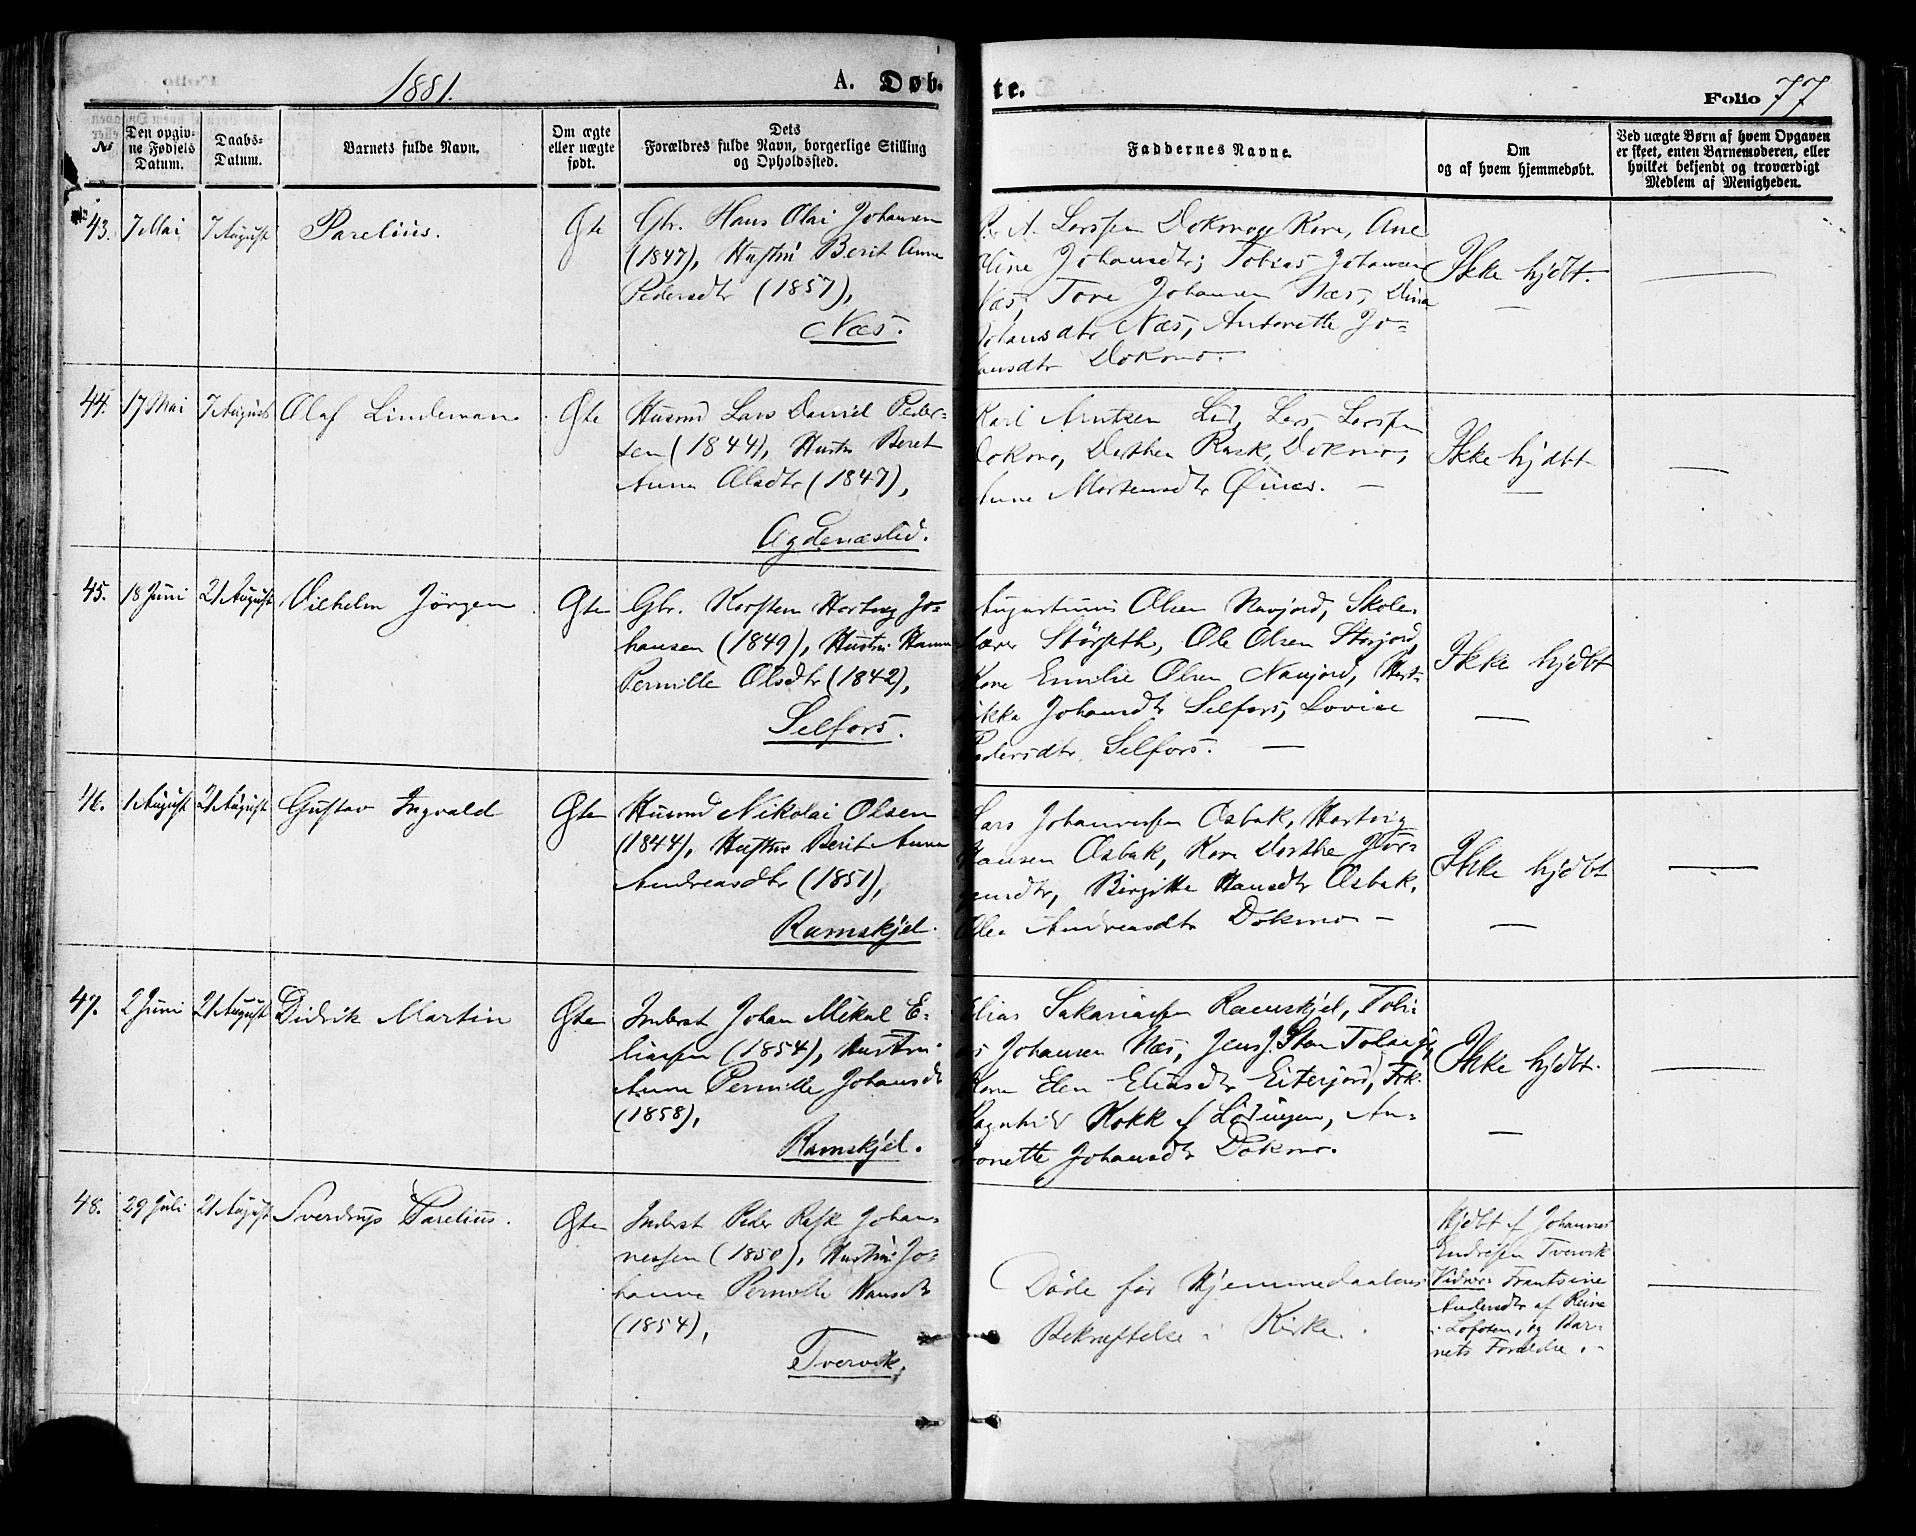 1881.
A. Døb-
te.
Folio 77
No
Den opgiv-
ne Fødsels
Datum.
Daabs-
Datum.
Barnets fulde Navn.
Om ægte
eller uægte
født.
Dets
Forældres fulde Navn, borgerlige Stilling
og Opholdssted.
Faddernes Navne.
Om
og af hvem hjemmedøbt.
Ved uægte Børn af hvem Opgaven
er skeet, enten Barnemoderen, eller
hvilket bekjendt og troværdigt
Medlem af Menigheden.
43. 7 Mai 7 August Parelius. Ægte
Gbr. Hans Olai Johansen
(1847), Hustru Berit Anne
Pedersdtr (1857),
Næs.
Johansdtr; Tobias Johansen
Næs, Tore Johansen Næs, Dina
Johansdtr Næs, Antonette Jo-
hansdtr Dokmo.
Ikke hjdbt.
44. 17 Mai 7 August Olaf Lindeman Ægte
Husmd Lars Daniel Peder-
sen (1844), Hustru Beret
Anna Olsdtr (1847),
Agdenæslid.
Karl Knutsen Lid, Lars Larssen
Dokmo, Dorthea Rask, Dokmo,
Anne Mortensdtr Øines.
Ikke hjdbt
45. 18 Juni 21 August Vilhelm Jørgen Ægte
Gbr. Korsten Hartvig Jo-
hansen (1849), Hustru Hanna
Pernille Olsdtr (1842),
Selfors.
Augustinus Olsen Navjord, Skole-
lærer Storseth, Ole Olsen Storjord,
Kone Emilie Olsen Navjord, Hart-
vikka Johansdtr Selfors, Lovise
Pedersdtr Selfors.
Ikke hjdbt
46. 1 August 21 August Gustav Ingvald Ægte
Husmd Nikolai Olsen
(1844), Hustru Berit Anna
Andreasdtr (1851),
Ramskjel.
Lars Johannessen Osbak, Hartvig
Hansen Osbak, Kone Dorthe Jør-
gensdtr, Birgitte Hansdtr Osbak,
Andreasdtr Dokmo
Ikke hjdbt
47. 2 Juni 21 August Didrik Martin Ægte
Inderst Johan Mikal E-
liassen (1854), Hustru
Anne Pernille Johansdtr
(1858),
Ramskjel.
Elias Sakariassen Ramskjel, Tobi-
as Johansen Næs, Jens J.
Kone Elen Eliasdtr Eiterjord, Frk.
Ragnhild Kokk f Lødingen, An-
tonette Johansdtr Dokmo.
Ikke hjdbt.
48. 29 Juli 21 August Sverdrup Parelius. Ægte
Inderst Peder Rask Johan-
nessen (1850), Hustru Jo-
hanna Pernille Hansdtr
(1854),
Tvervik.
Døde før Hjemmedaabens
Bekræftelse i Kirke.
Hjdbt af Johannes
Endresen Tvervik
Vidner Frantsine
Andersdtr af Reine
i Lofoten, og Bar-
nets Forældre.